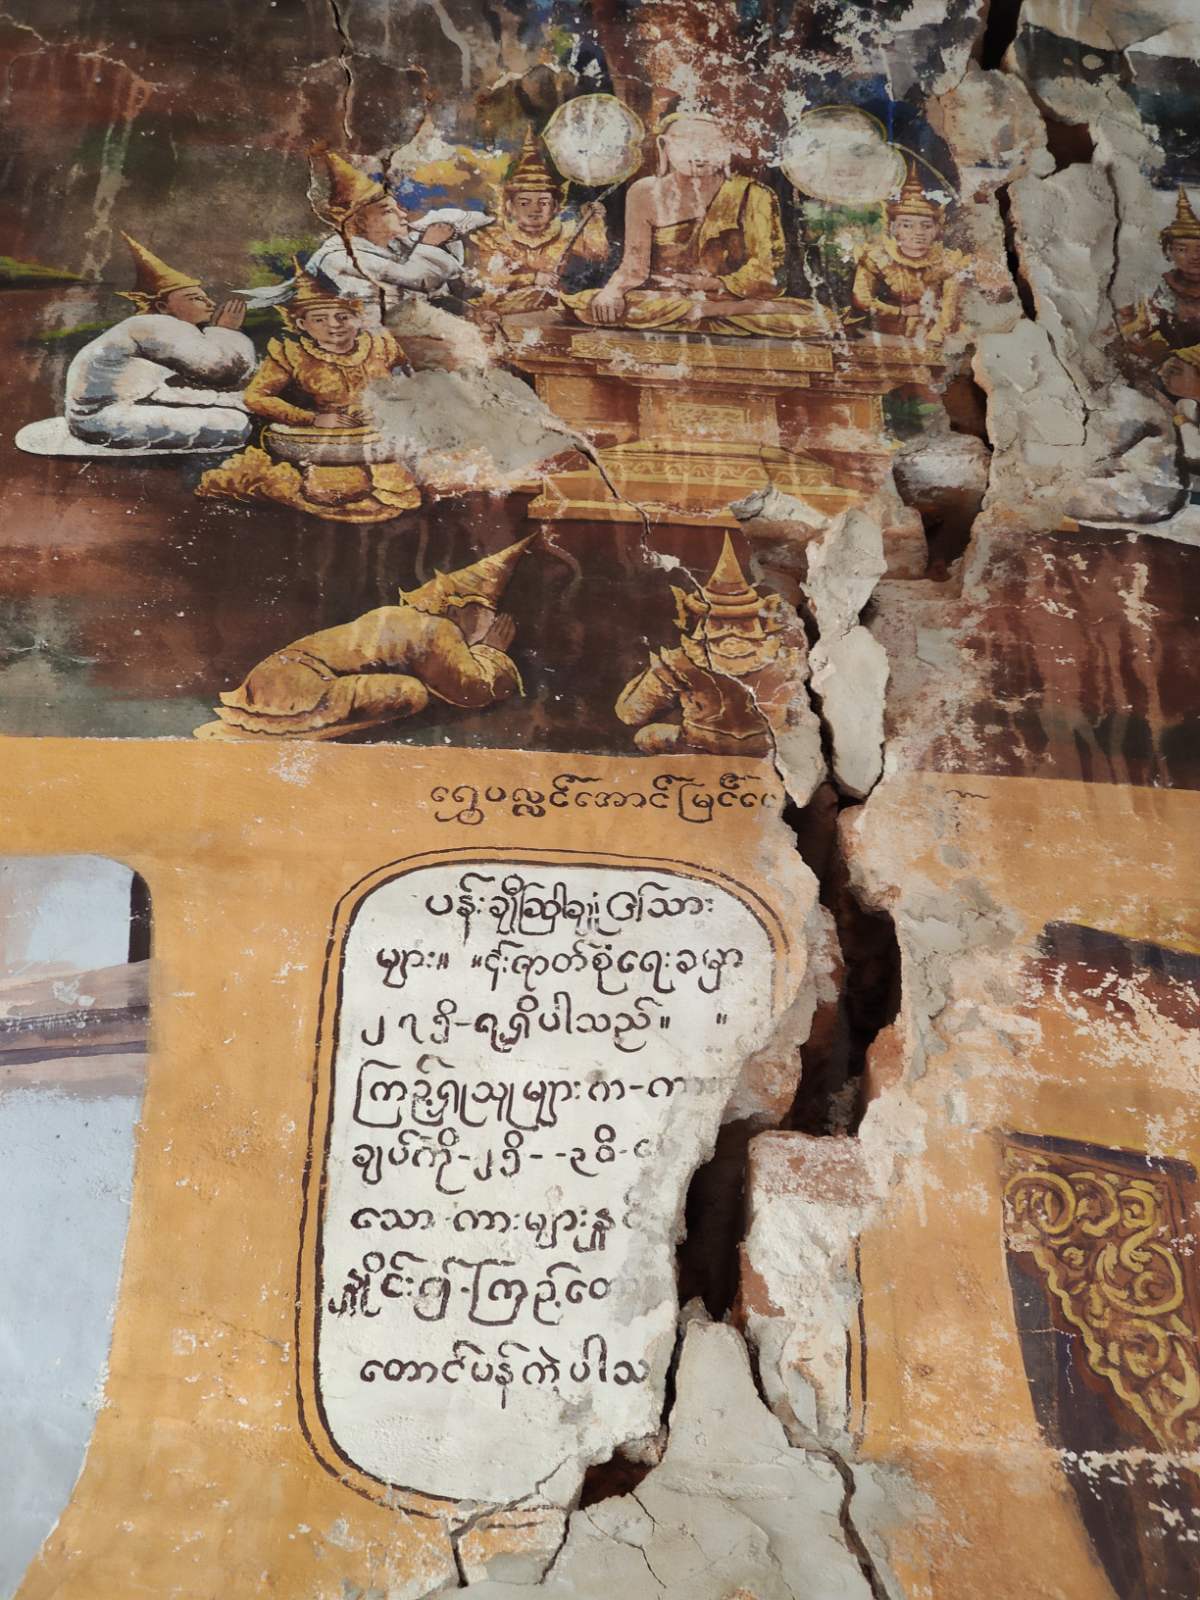 ရွှေပလ္လင်အောင်မြင်
ပန်းချီဆြာချုံ၊ ဩသား
များ။ ။၎င်းဇာတ်စုံရေးခမှာ
၂၇၅ိ-ရ၍ရှိပါသည်။ ။
ကြည့်ရှုသူများက-ကား
ချပ်ကို-၂၅ိ--၃ဝိ-
သော-ကားများနှ
နှိုင်း၍-ကြည့်
တောင်ပန်ကဲ့ပါသ